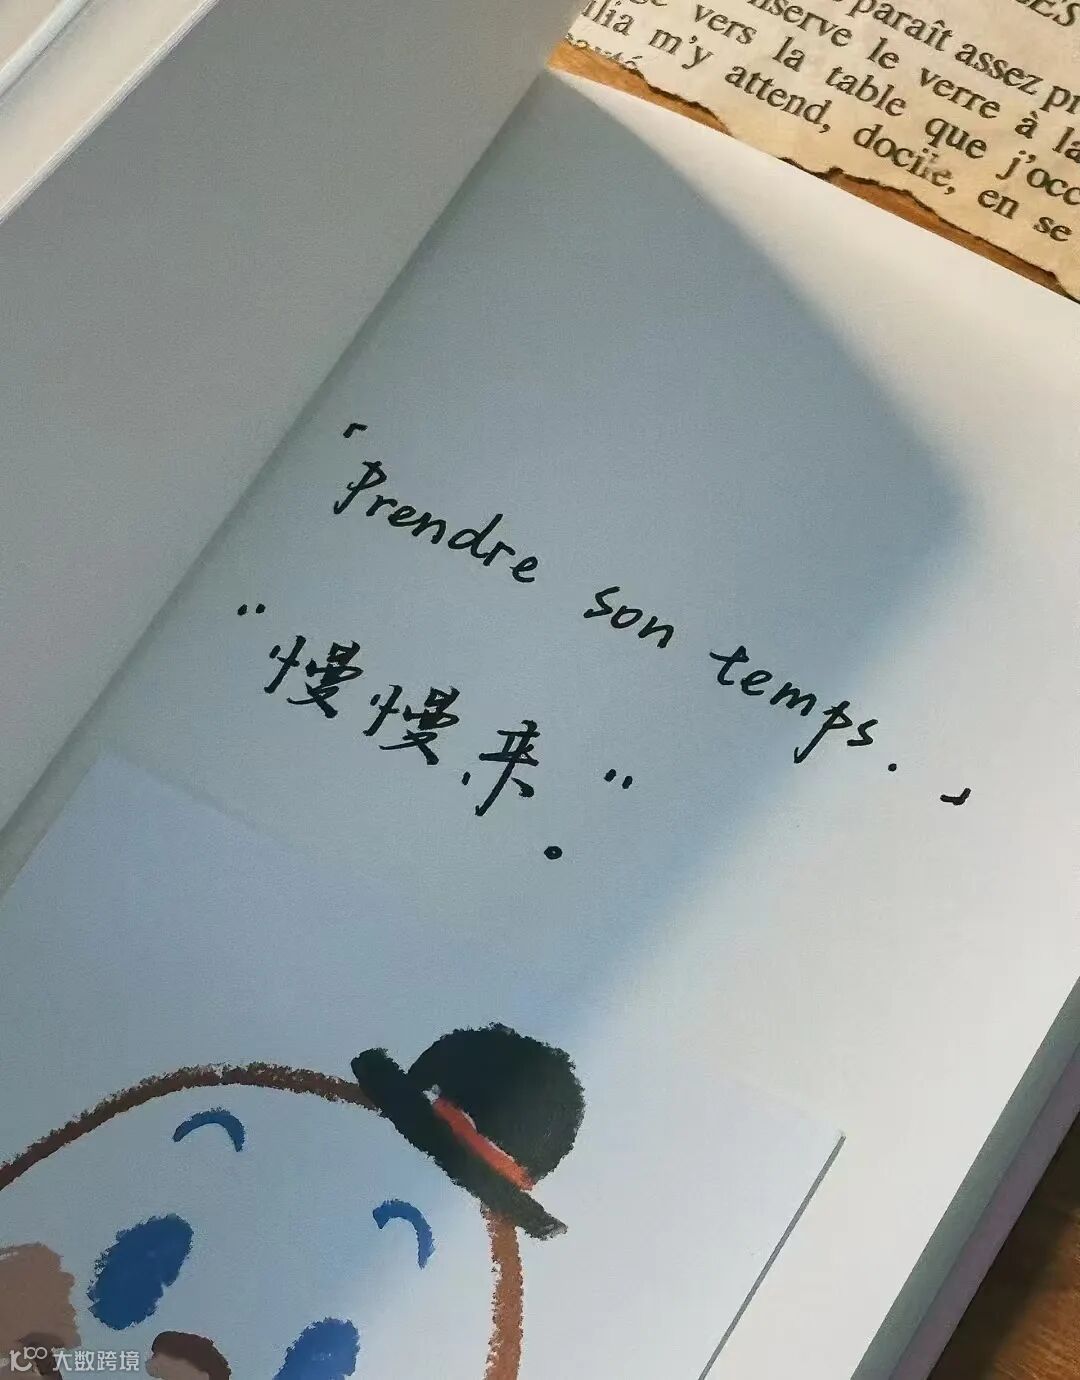 LES
paraît assez pr
nserve le verre à la
ge vers la table que j'occ
ilia m'y attend, docile, en se
「Prendre son temps.」
“慢慢来”。
大数跨境